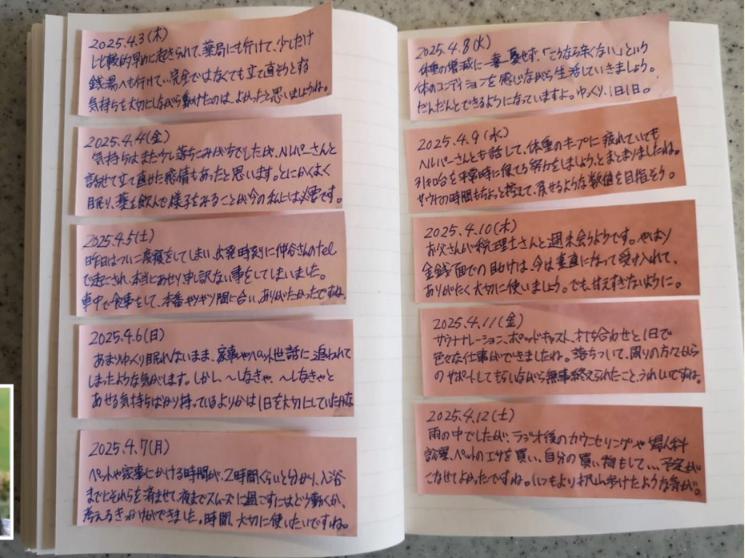 2025.4.3(木)
比較的早めに起きられて、薬局にも行けて、少しだけ
銭湯へも行けて…完全ではなくても立て直そうとする
気持ちを大切にしながら動けたのは、よかったと思いますよね。
2025.4.4(金)
気持ちはまた少し落ちこみがちでしたが、ヘルパーさんと
話せて立て直せた感情もあったと思います。とにかくよく
眠り、薬を飲んで様子をみることが今の私には必要です。
2025.4.5(土)
昨日はついに寝坊をしてしまい、出発時刻に仲谷さんのtel
で起こされ、本当にあせり申し訳ない事をしてしまいました。
車中で食事をして、本番ギリギリ間に合い、ありがたかったですね。
2025.4.6(日)
あまりゆっくり眠れないまま、家事やペット世話に追われて
しまったような気がします。しかし、〜しなきゃ、〜しなきゃと
あせる気持ちばかり持っているよりかは1日を大切にしていたかな
2025.4.7(月)
ペットや家事にかける時間が、2時間くらいと分かり、入浴
までにそれらを済ませて、夜までスムーズに過ごすにはどう動くか、
考えるきっかけができました。時間、大切に使いたいですね。
2025.4.8(火)
体重の増減に一喜一憂せず、「こうなら良くない」という
体のコンディションを感じながら生活していきましょう。
だんだんとできるようになっていますよ。ゆっくり、1日1日。
2025.4.9(水)
ヘルパーさんとも話して、体重のキープに疲れていても
キロ台を平常時に保てる努力をしましょう、とまとまりましたね。
サウナの時間もちょっと控えて、戻せるような数値を目指そう。
2025.4.10(木)
お父さんが税理士さんと週末会うようです。やはり
金銭面での助けは、今は素直になって受け入れて、
ありがたく大切に使いましょう。でも、甘えすぎないように。
2025.4.11(金)
サウナナレーション、ポッドキャスト、打ち合わせと1日で
色々な仕事ができましたね。落ちついて、周りの方々から
のサポートしてもらいながら無事終えられたこと、うれしいですね。
2025.4.12(土)
雨の中でしたが、ラジオ後のカウンセリングや婦人科
診察、ペットのエサを買い、自分の買い物もして…予定が
こなせてよかったですね。いつもより沢山歩けたような気が。